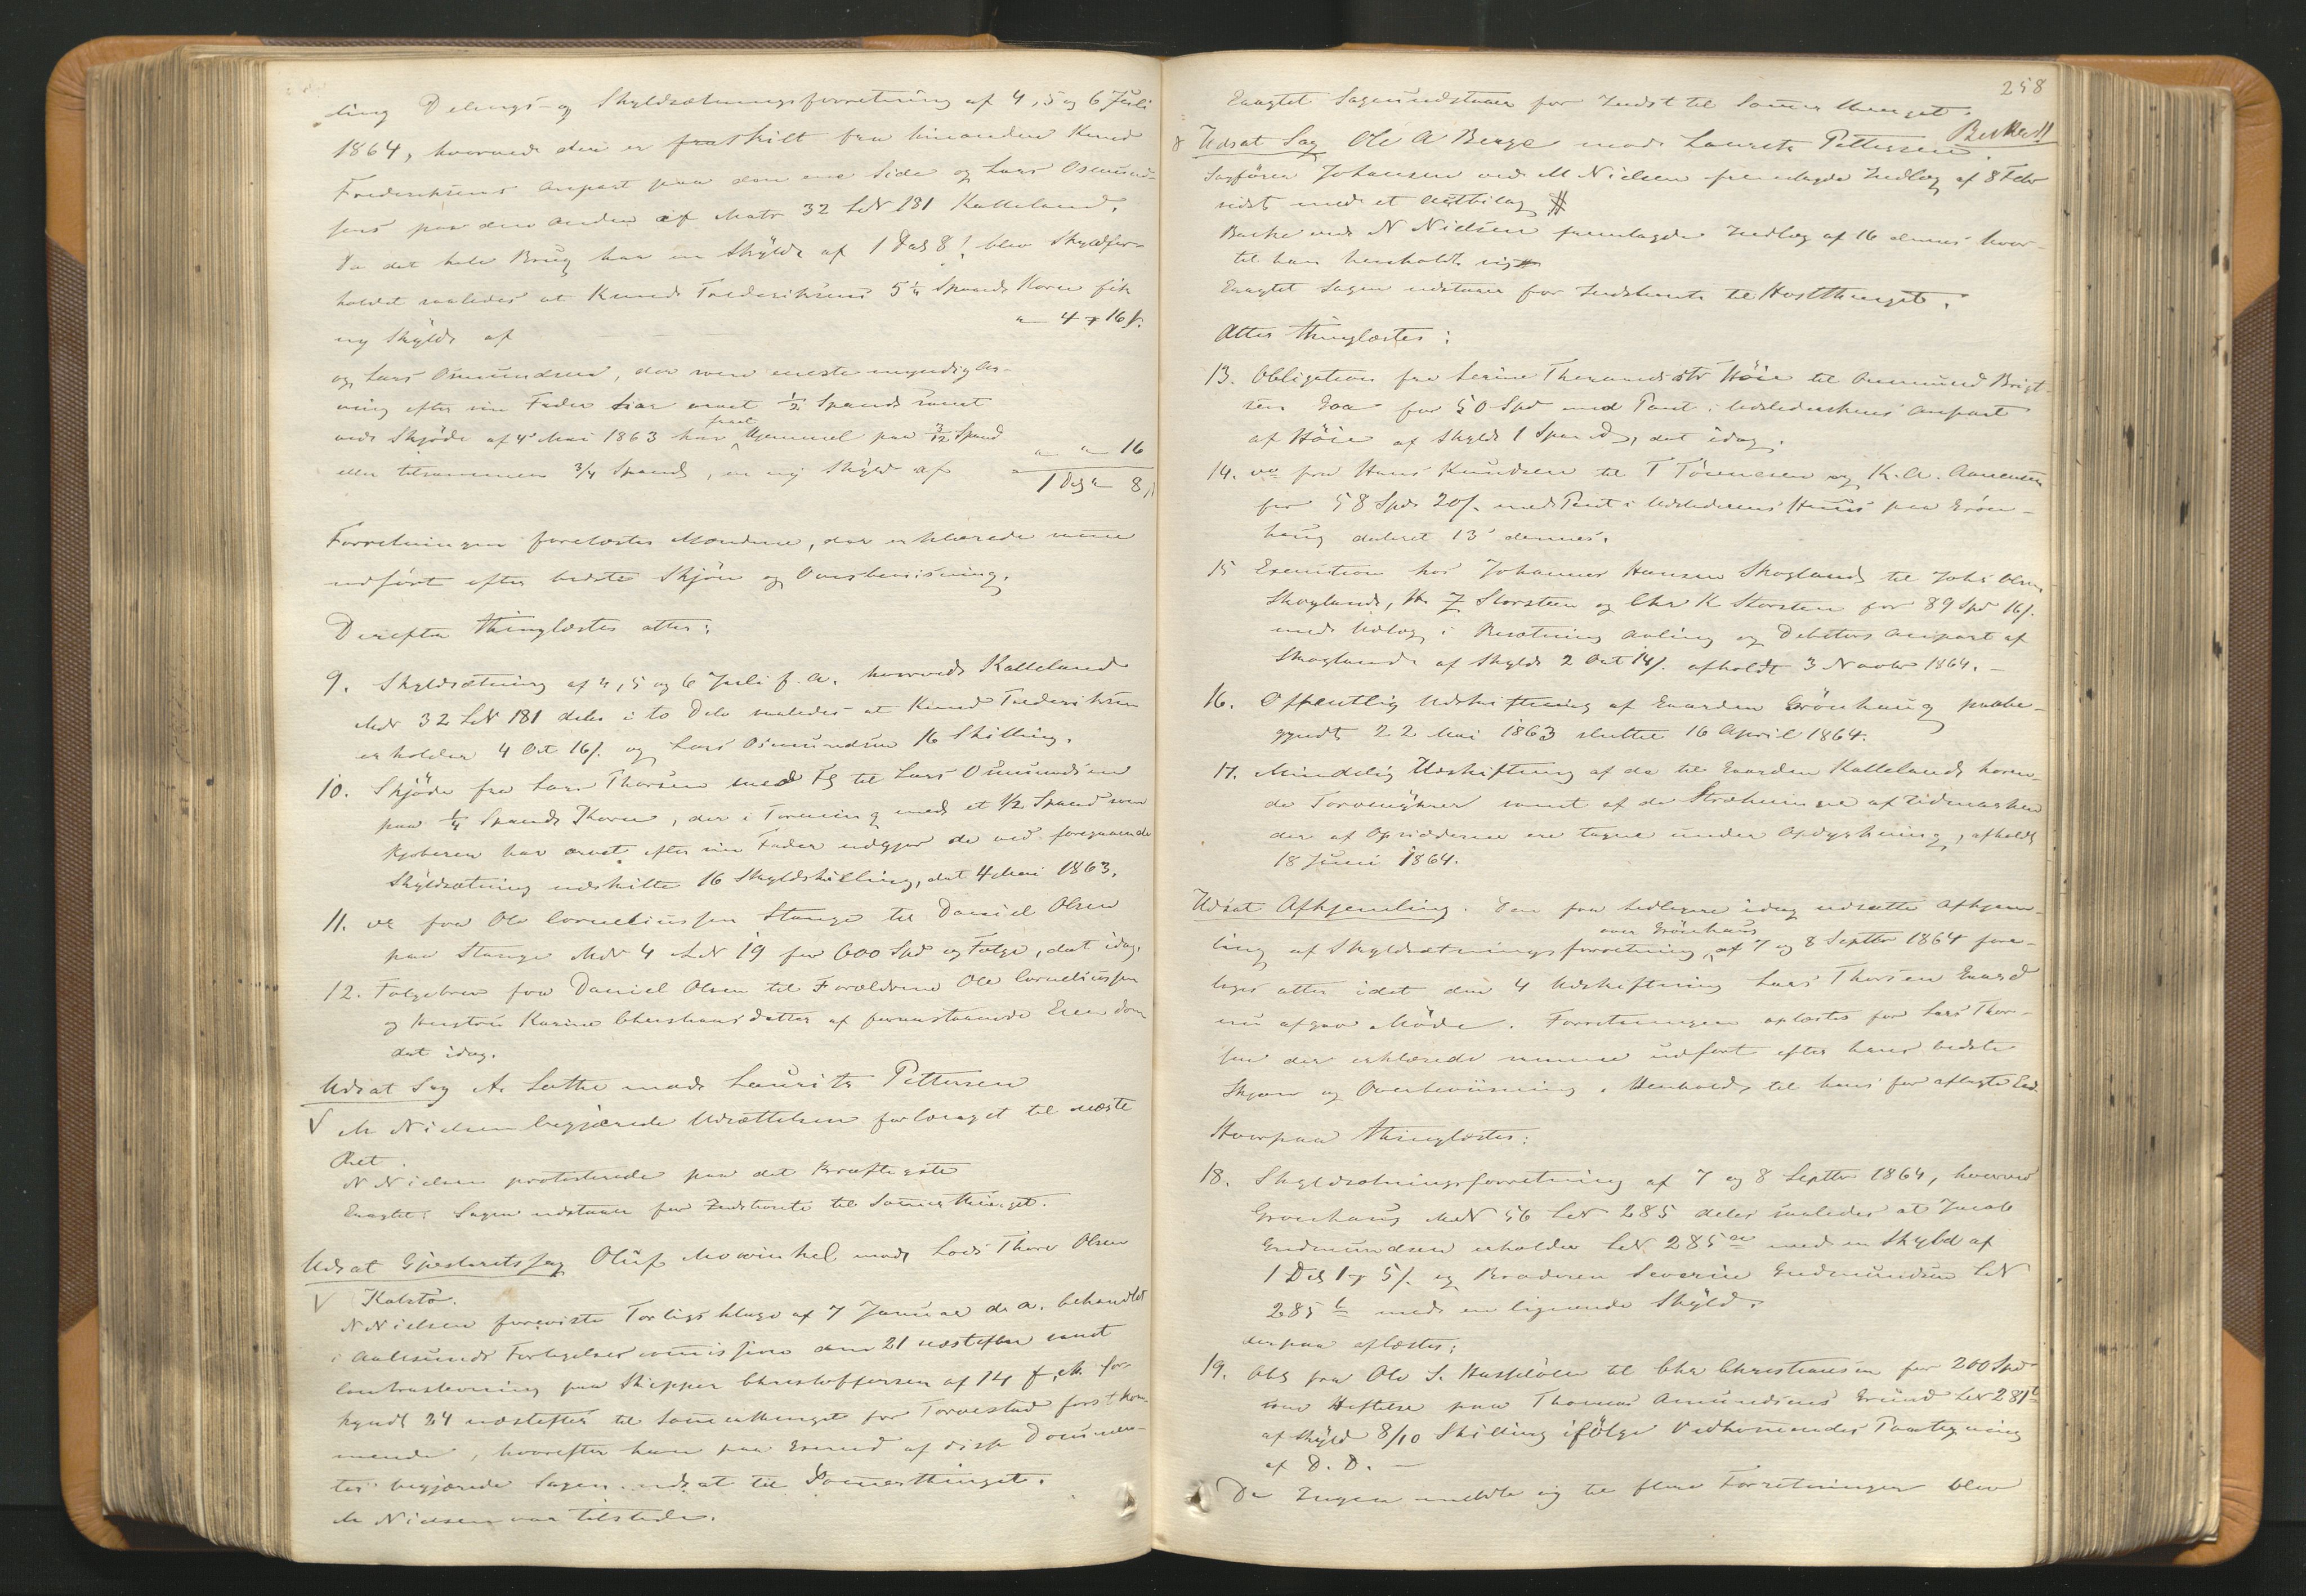 ding Delings- og Skyldsætningsforretning af 4, 5 og 6 Juli
1864, hvorved der er fraskilt fra hinanden Knud
Frederiksens Anpart paa den ene Side og Lars Osmund-
sens paa den anden af Matr 32 LN 181 Kalleland.
Da det hele Brug har en Skyld af 1 Dal 8 ! blev Skyldfor-
holdet saaledes at Knud Frederiksens 5¼ Spands Korn fik
ny Skyld af " 4 16 s.
og Lars Osmundsen, der som eneste myndig Ar-
ving efter sin Fader har arvet ½ Spand samt
ved Skjøde af 4' Mai 1863 har faaet Hjemmel paa 3/12 Spand
eller tilsammen 3/4 Spand, en ny Skyld af " " 16
1 Dal " 8 s
Forretningen forelæstes Mændene, der erklærede
udført efter bedste Skjøn og Overbeviisning.
Derefter thinglæstes atter:
9. Skyldsætning af 4, 5 og 6 Juli f. A. hvorved Kalleland
MN 32 LN 181 deles i to Dele saaledes at Knud Frederiksen
erholder 4 Ort 16 s. og Lars Osmundsen 16 Skilling.
10. Skjøde fra Lars Thorsen med Fl til Lars Osmundsen
paa ¼ Spands Korn, der i Forening med et ½ Spand som
Kjøberen har arvet efter sin Fader udgjør de ved foregaaende
Skyldsætning udskilte 16 Skyldskilling, dat 4 Mai 1863.
11. do fra Ole Corneliussen Stange til Daniel Olsen
paa Stange MN 4 LN 19 for 600 Spd og Følge, dat idag.
12. Følgebrev fra Daniel Olsen til Forældrene Ole Corneliussen
og Hustru Karine Christiansdatter af foranstaaende Eiendom
dat idag.
Udsat Sag A. Lothe mod Laurits Pettersen
V M Nielsen begjærede Udsættelsen forlænget til næste
Ret.
N Nielsen protesterede paa det Kraftigste
Eragtet: Sagen udstaaer for Indstævnte til Sommerthinget.
Udsat Gjesteretssag Oluf Mowinkel mod Lods Thore Olsen
V Kalstø.
N Nielsen foreviste Forligsklage af 7 Januar d. A. behandlet
i Aakresunds Forligelsescommission den 21 næstefter samt
Contrastevning paa Skipper Christoffersen af 14 f. M. for-
kyndt 24 næstefter til Sommerthinget for Torvestad førstkom-
mende, hvorefter han paa Grund af disse Documen-
ter begjærede Sagen udsat til Sommerthinget.
M Nielsen var tilstede.
258
Eragtet Sagen udstaaer for Indst til Sommerthinget.
Udsat Sag Ole A Berge mod Laurits Pettersen.
Sagfører Johansen ved M Nielsen fremlagde Indlæg af 8 Febr
sidst med et Actbilag #
ved N Nielsen fremlagde Indlæg af 16 dennes hvor-
til han henholdt sig
Eragtet Sagen udstaaer for Indstævnte til Høstthinget.
Atter thinglæstes:
13. Obligation fra Serine Thoramdsdtr Høie til Aamund Brigt-
sen for 50 Spd med Pant i Udstederskens Anpart
af Høie af Skyld 1 Spand, dat idag.
14. do fra Hans Knudsen til T Tønnesen og K. A. Aanensen
for 58 Spd 20 s. med Pant i Udstederens Huus paa Grøn-
haug dateret 13' dennes.
15 Execution hos Johannes Hansen Skogland til Johs Olsen
Skogland, H. J Storsteen og Chr K Storsteen for 89 Spd 16 s.
med Udlæg i Besætning Avling og Debitors Anpart af
Skogland af Skyld 2 Ort 14 s. afholdt 3 Novbr 1864. –
16. Offentlig Udskiftning af Gaarden Grönhaug paabe-
gyndt 22 Mai 1863 sluttet 16 April 1864.
17. Mindelig Udskiftning af de til Gaarden Kalleland hören-
de Torvmyhrer samt af de Strækninger af Udmarken
der af Opsidderne ere tagne under Opdyrkning, afholdt
18 Juni 1864.
Udsat Afhjemling. Den fra tidligere idag udsatte Afhjem-
ling af Skyldsætningsforretning over Grönhaug af 7 og 8 Septbr 1864 fore-
toges atter idet den 4 Udskiftning Lars Thorsen
nu afgav Møde. Forretningen oplæstes for Lars Thor-
sen der erklærede samme udført efter hans bedste
Skjøn og Overbeviisning. Henholdt til hans før aflagte Eed.
Hvorpaa thinglæstes:
18. Skyldsætningsforretning af 7 og 8 Septbr 1864, hvorved
Grønhaug MN 56 LN 285 deles saaledes at Jacob
Gudmundsen erholder LN 285 a med en Skyld af
1 Dal 1 5 s. og Broderen Severin Gudmundsen LN
285 b med en lignende Skyld.
derpaa aflæstes:
19. Obl fra Ole S. til Chr Christiansen for 200 Spd
som Heftelse paa Thomas Amundsens Grund LN 281 b
af Skyld 8/10 Skilling ifölge Vedkommendes Paategning
af D. D. –
Da Ingen meldte sig til flere Forretninger blev